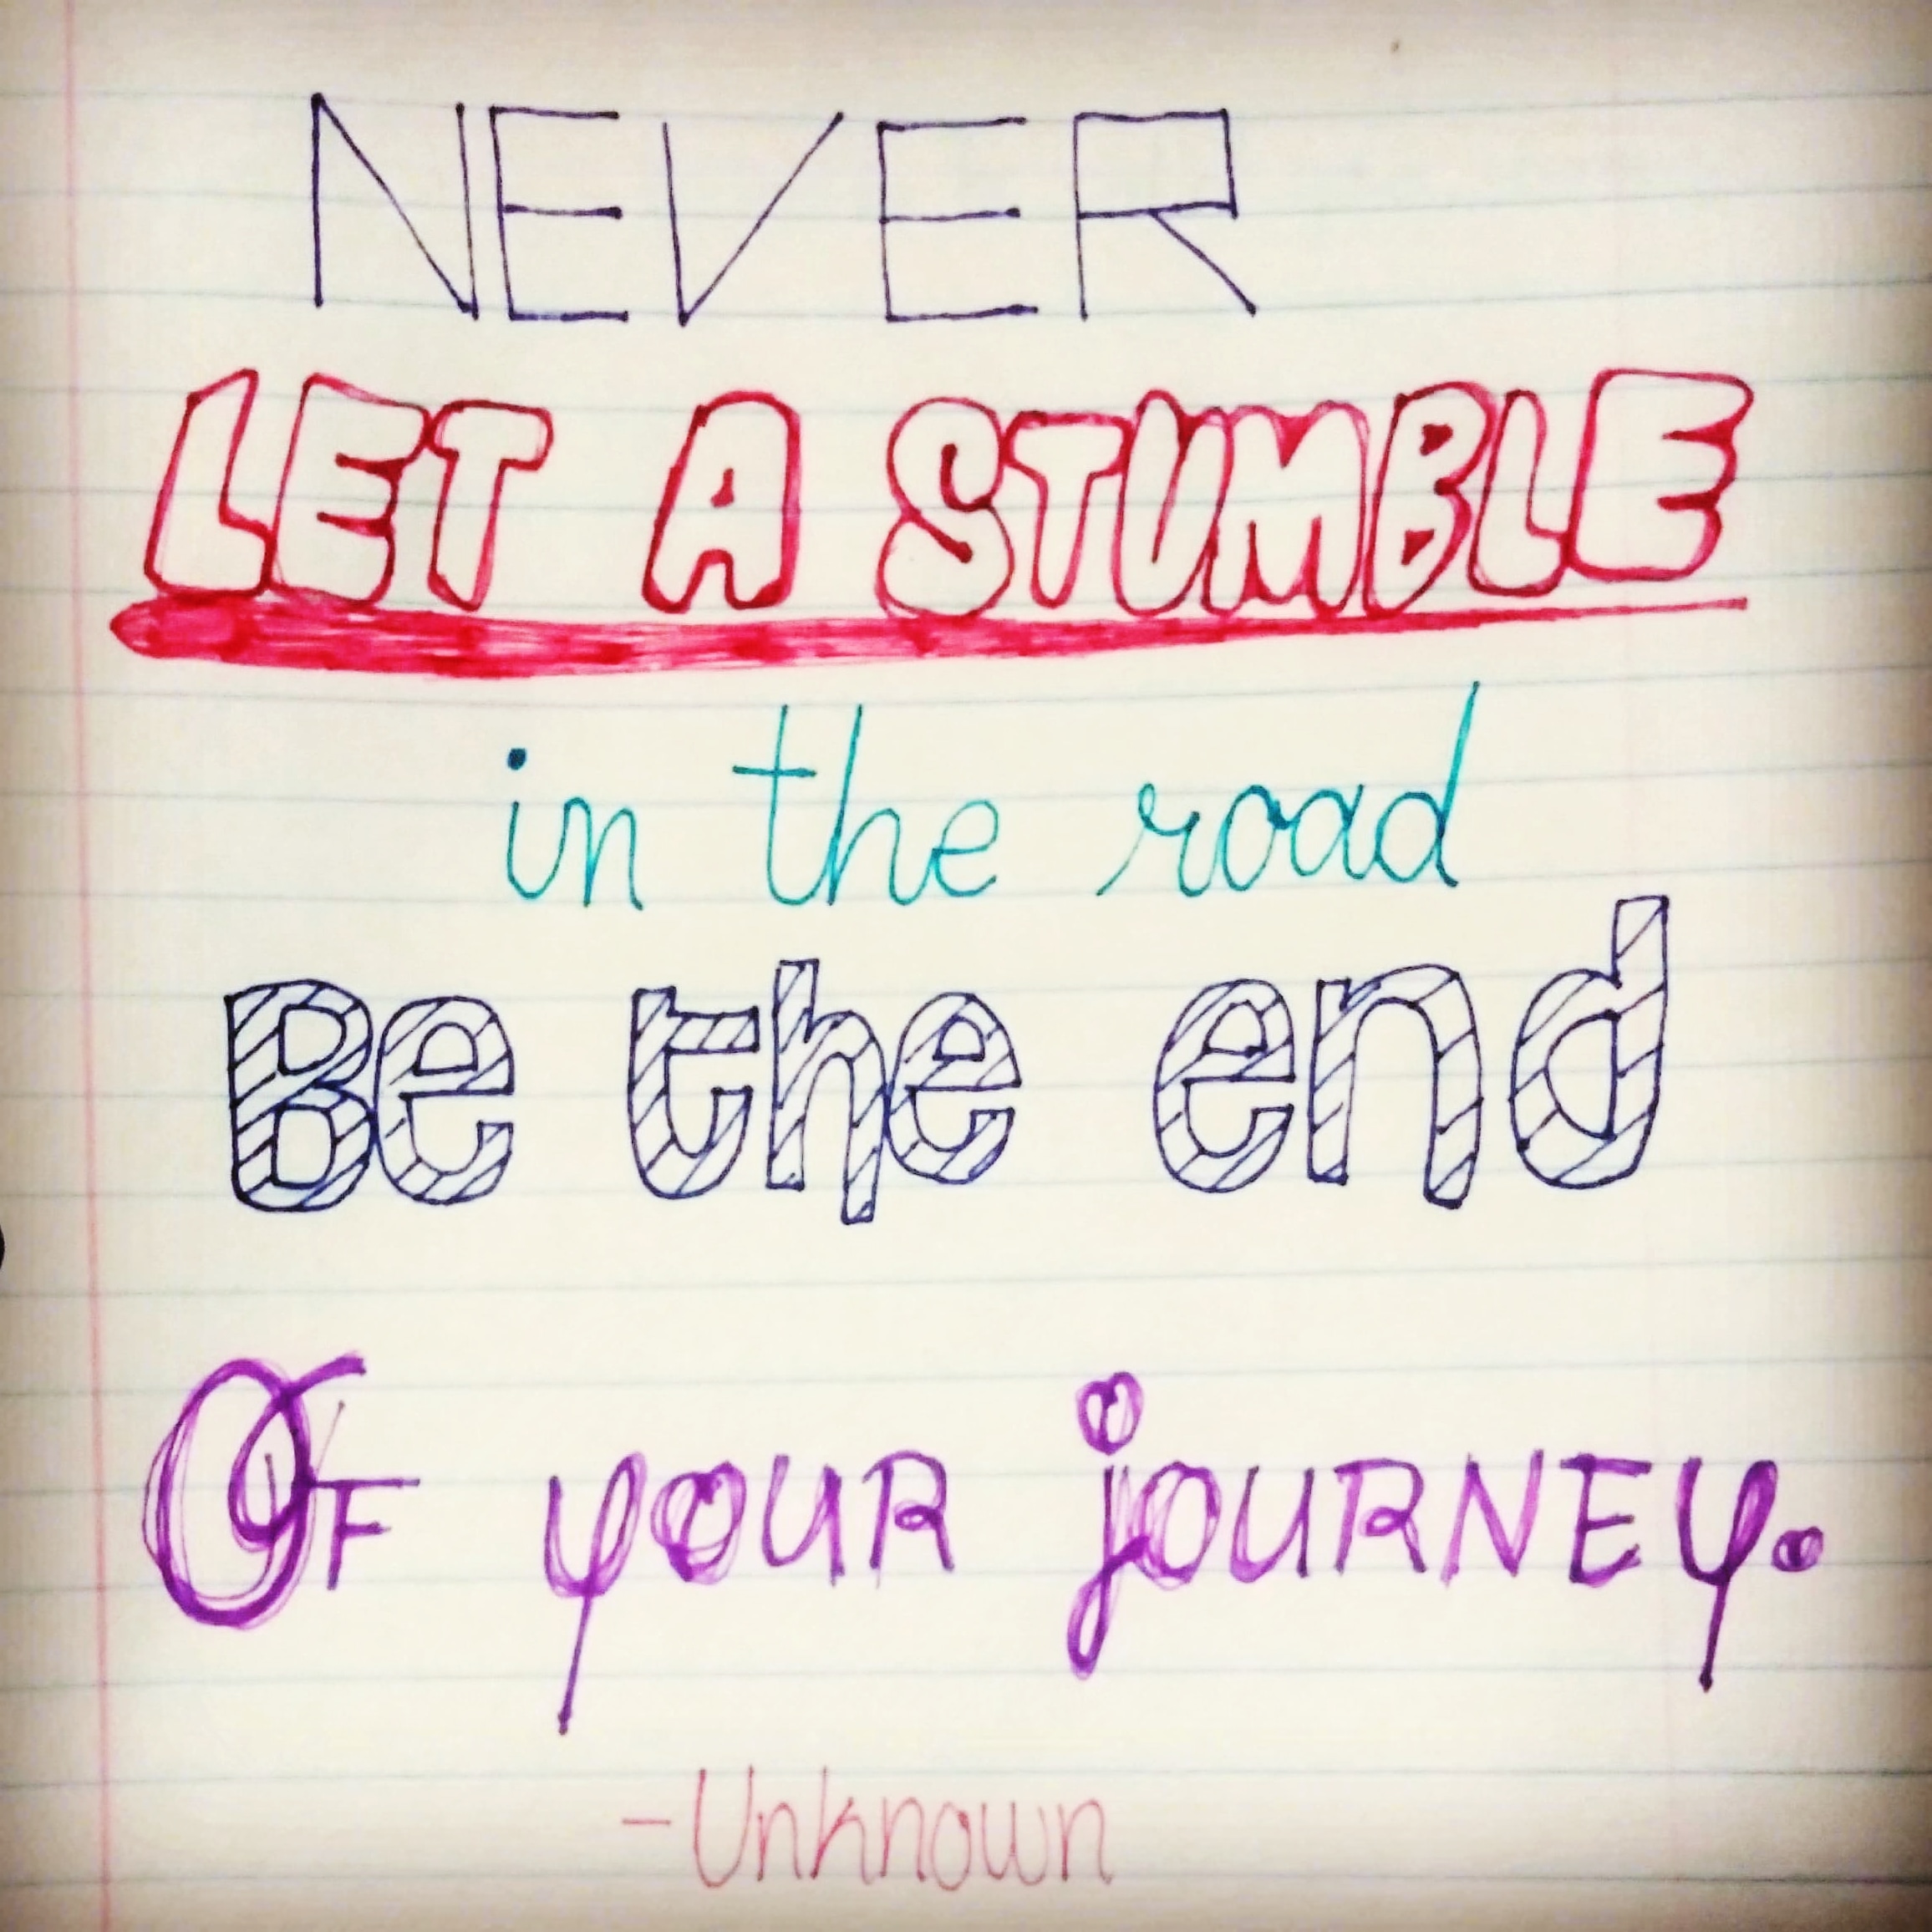 NEVER
LET A STUMBLE
in the road
Be the end
OF yOUR jOURNEY.
-Unknown